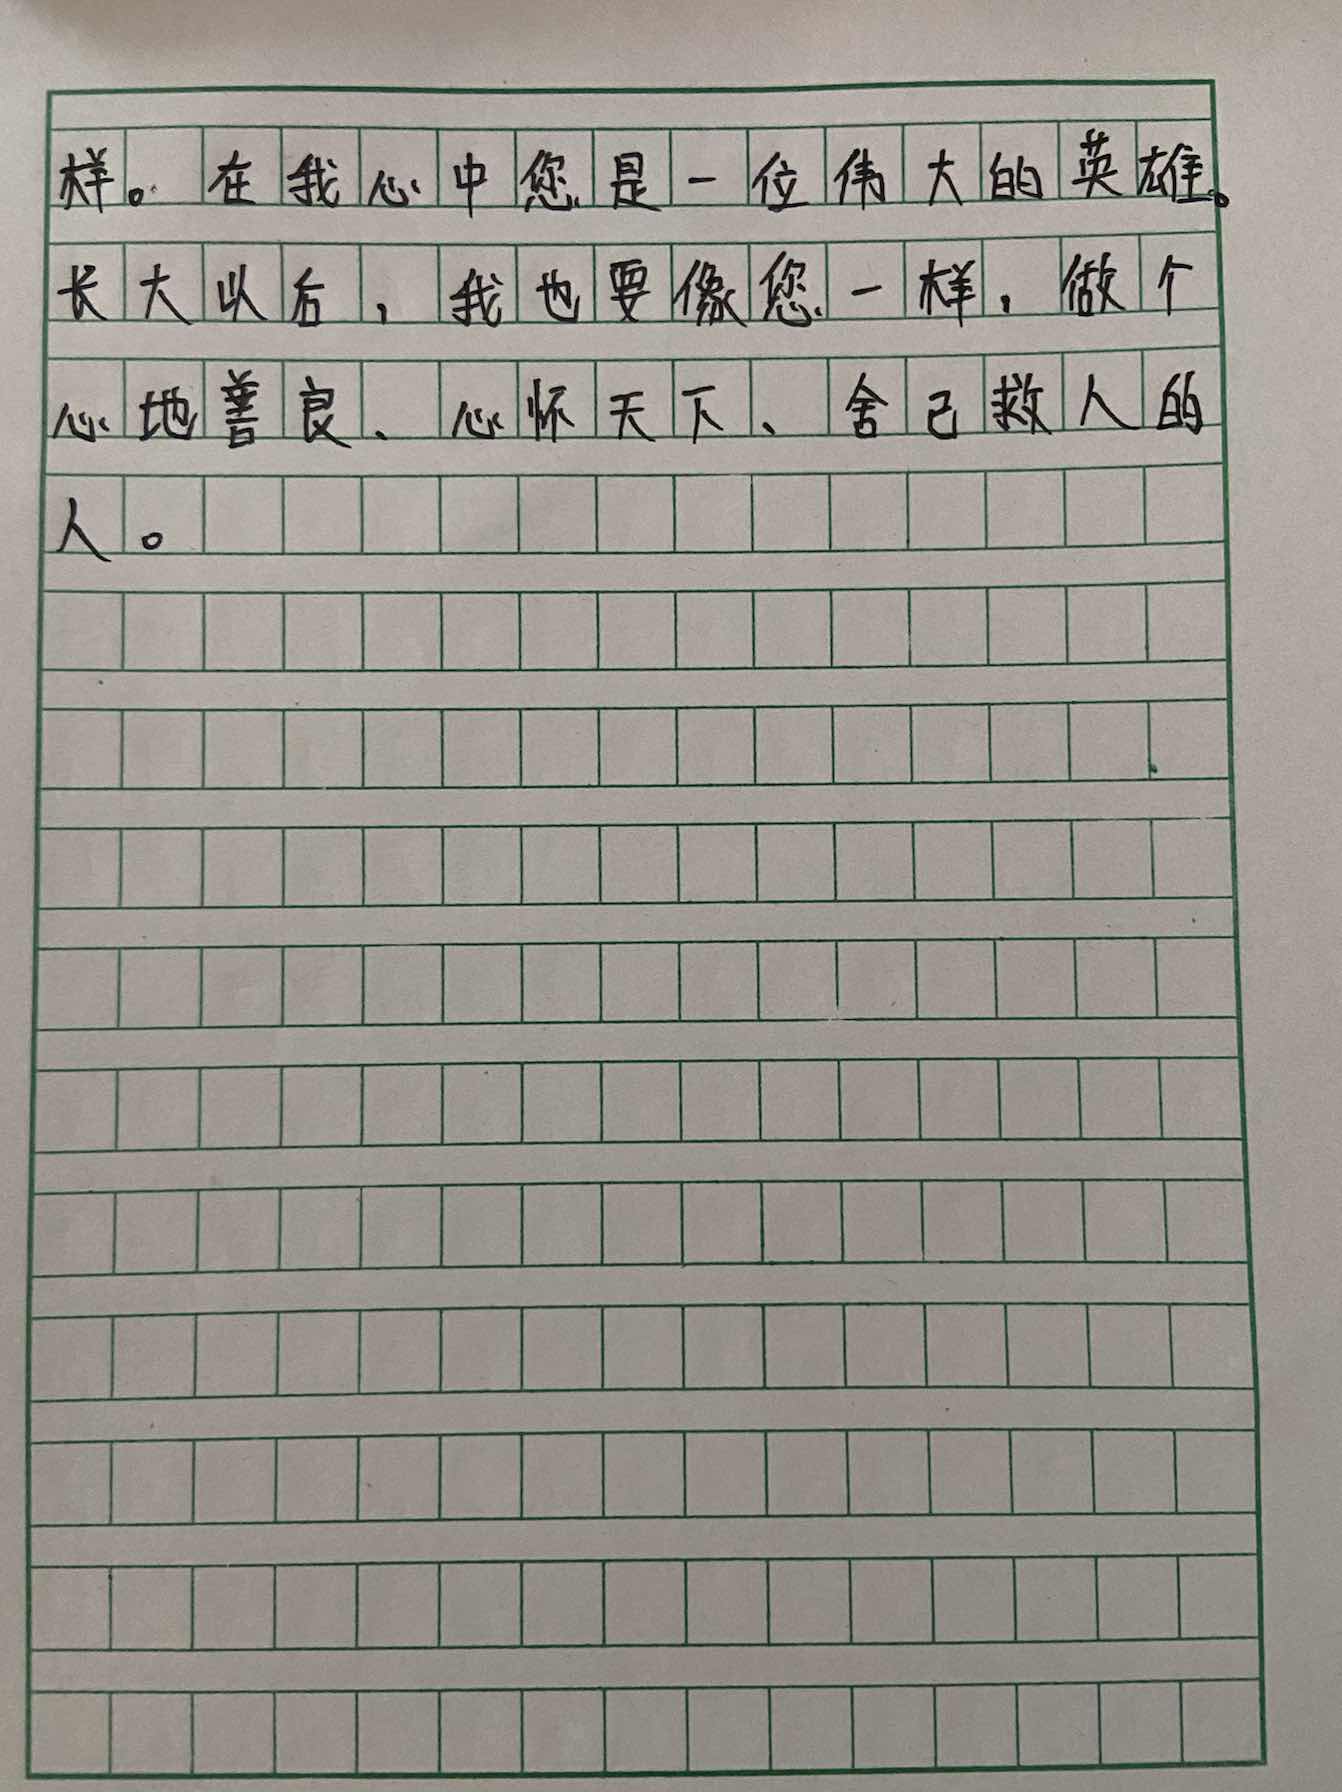 样。在我心中您是一位伟大的英雄。
长大以后，我也要像您一样，做个
心地善良、心怀天下、舍己救人的
人。